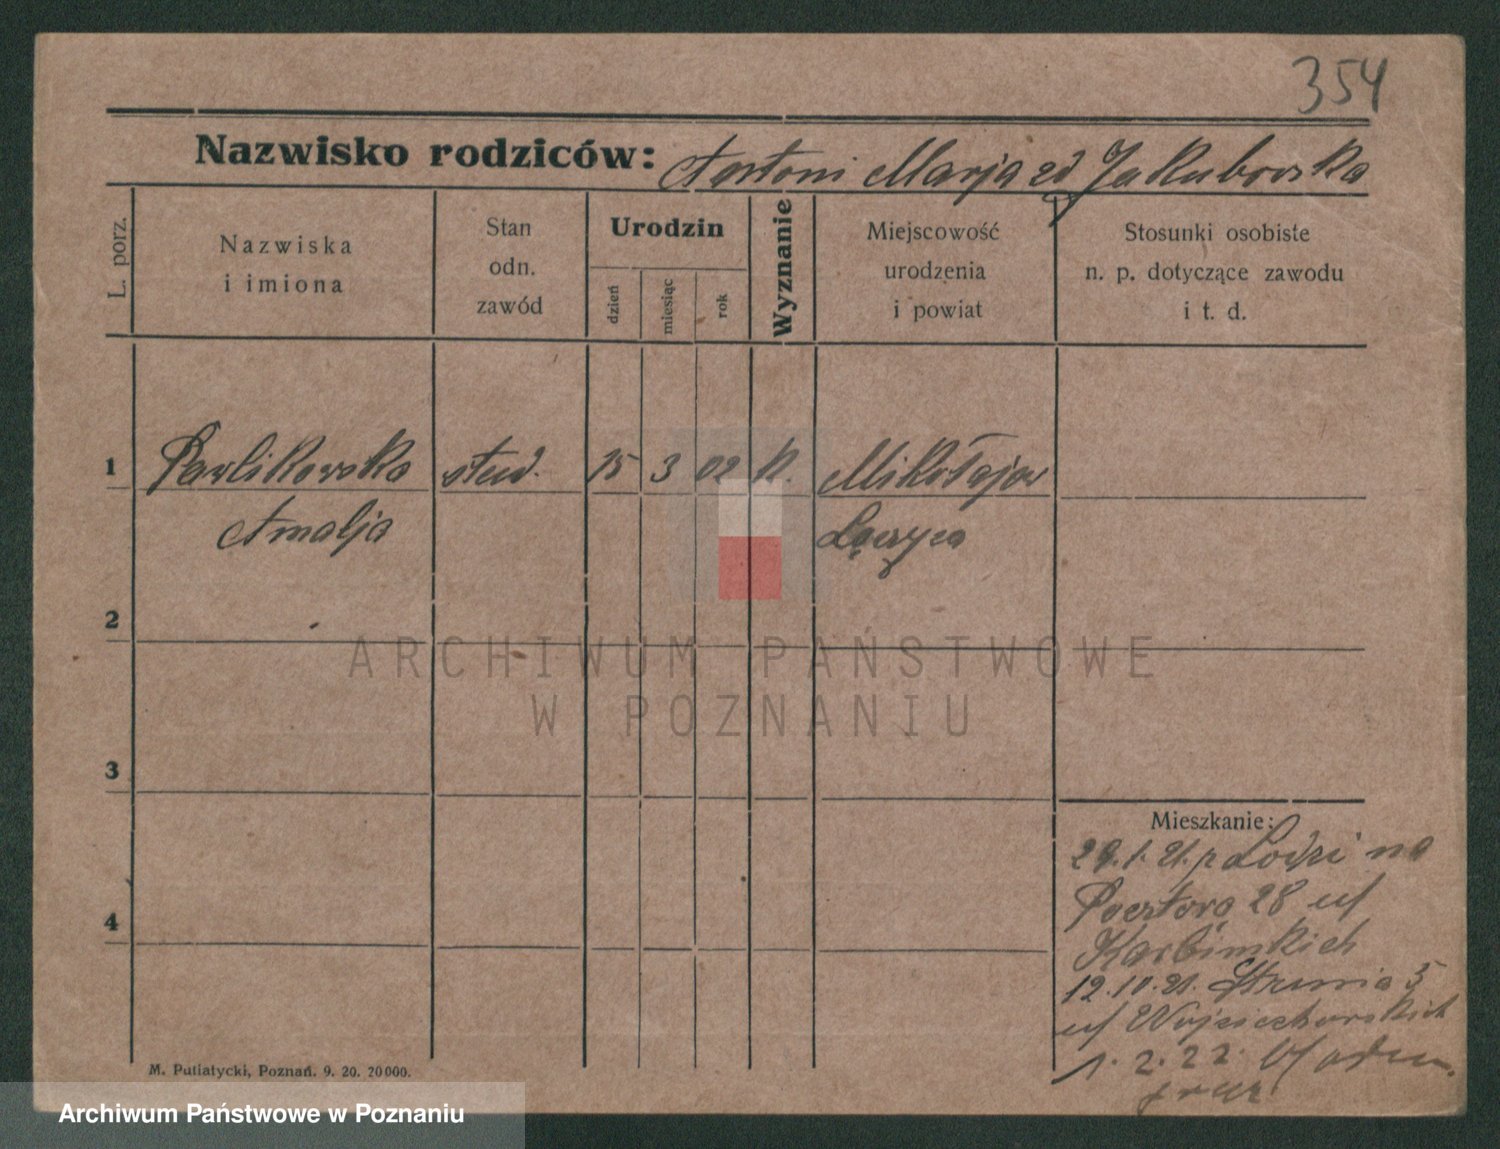 354
Nazwisko rodziców: Antoni Marja zd Jakubowska
L. porz.
Nazwiska
i imiona
Stan
odn.
zawód
Urodzin
dzień
miesiąc
rok
Wyznanie
Miejscowość
urodzenia
i powiat
Stosunki osobiste
n. p. dotyczące zawodu
i t. d.
1 Pawlikowska stud. 15 3 02 k. Mikołajow
Amalja Łęczyca
2
ARCHIWUM PAŃSTWOWE
W POZNANIU
3
Mieszkanie:
29.1.21. z Łodzi na
Pocztowa 28 u/
4
Karbińskich
12.10.21. Strumia 5
u/ Wojciechowskich
1.2.22.
M. Putiatycki, Poznań. 9. 20. 20000.
Archiwum Państwowe w Poznaniu